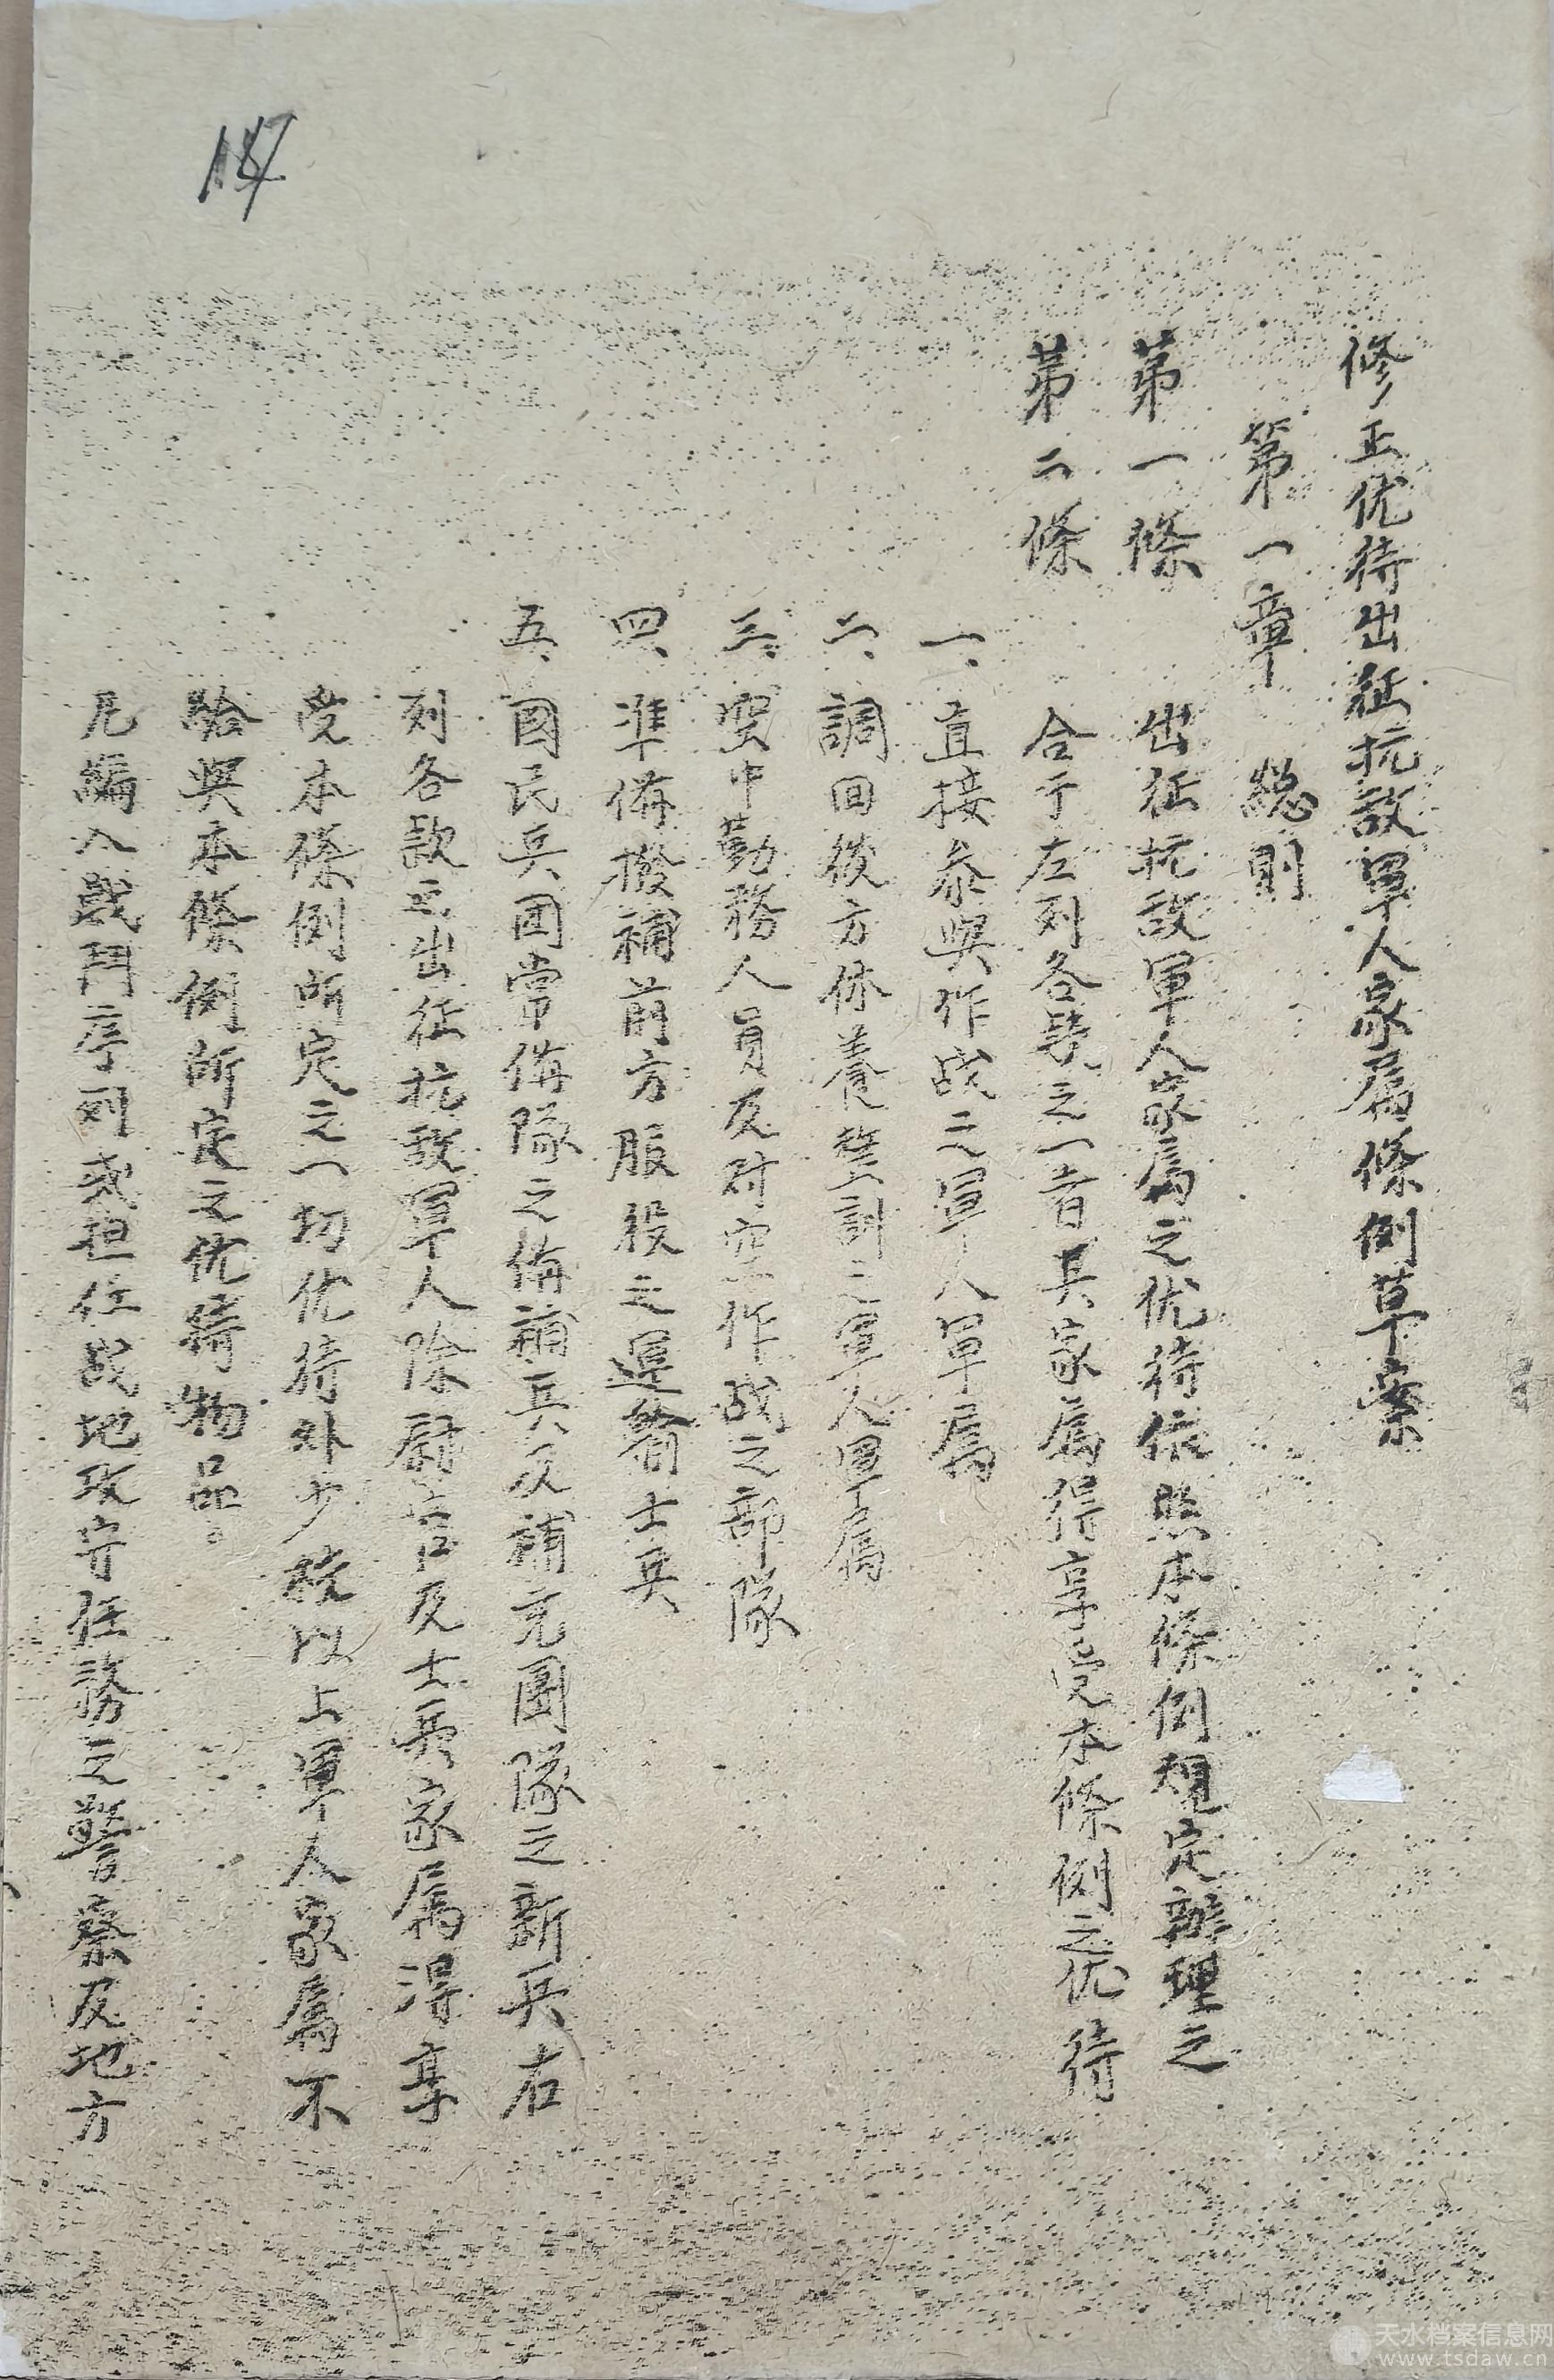 修正优待出征抗敌軍人家属條例草案
第一章 總則
第一條 出征抗敌軍人家属之优待依照本條例規定辦理之
第二條 合于左列各款之一者其家属得享受本條例之优待
一、直接参與作战之軍人軍属
二、調回後方休養整訓之軍人軍属
三、空中勤務人員及对空作战之部隊
四、準備撥補前方服役之運輸士兵
五、國民兵团常備隊之備補兵及補充團隊之新兵右
列各款之出征抗敌軍人除尉官及士兵家属得享
受本條例所定之一切优待外少校以上軍人家属不
給與本條例所定之优待物品。
凡編入戰鬥序列或担任战地攻守任務之警察及地方
天水档案信息网
www.tsdaw.cn